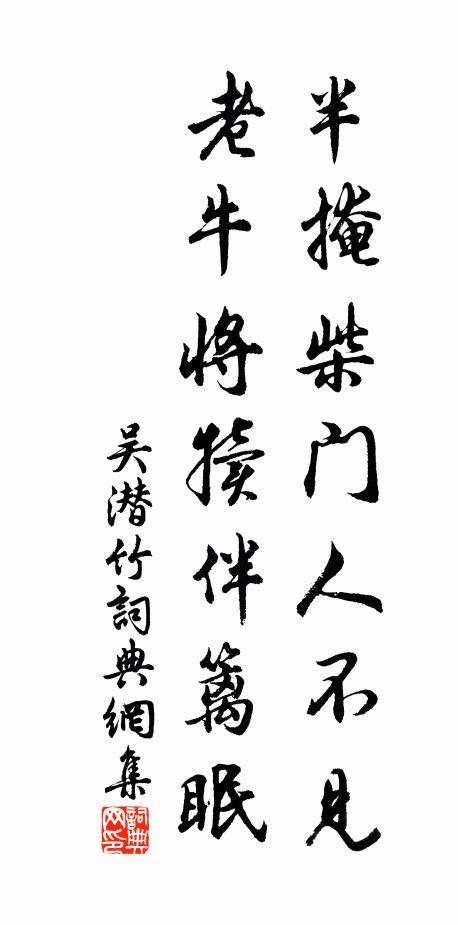 半掩柴门人不见
老牛将犊伴篱眠
吴潜竹詞典網集
詞典网印